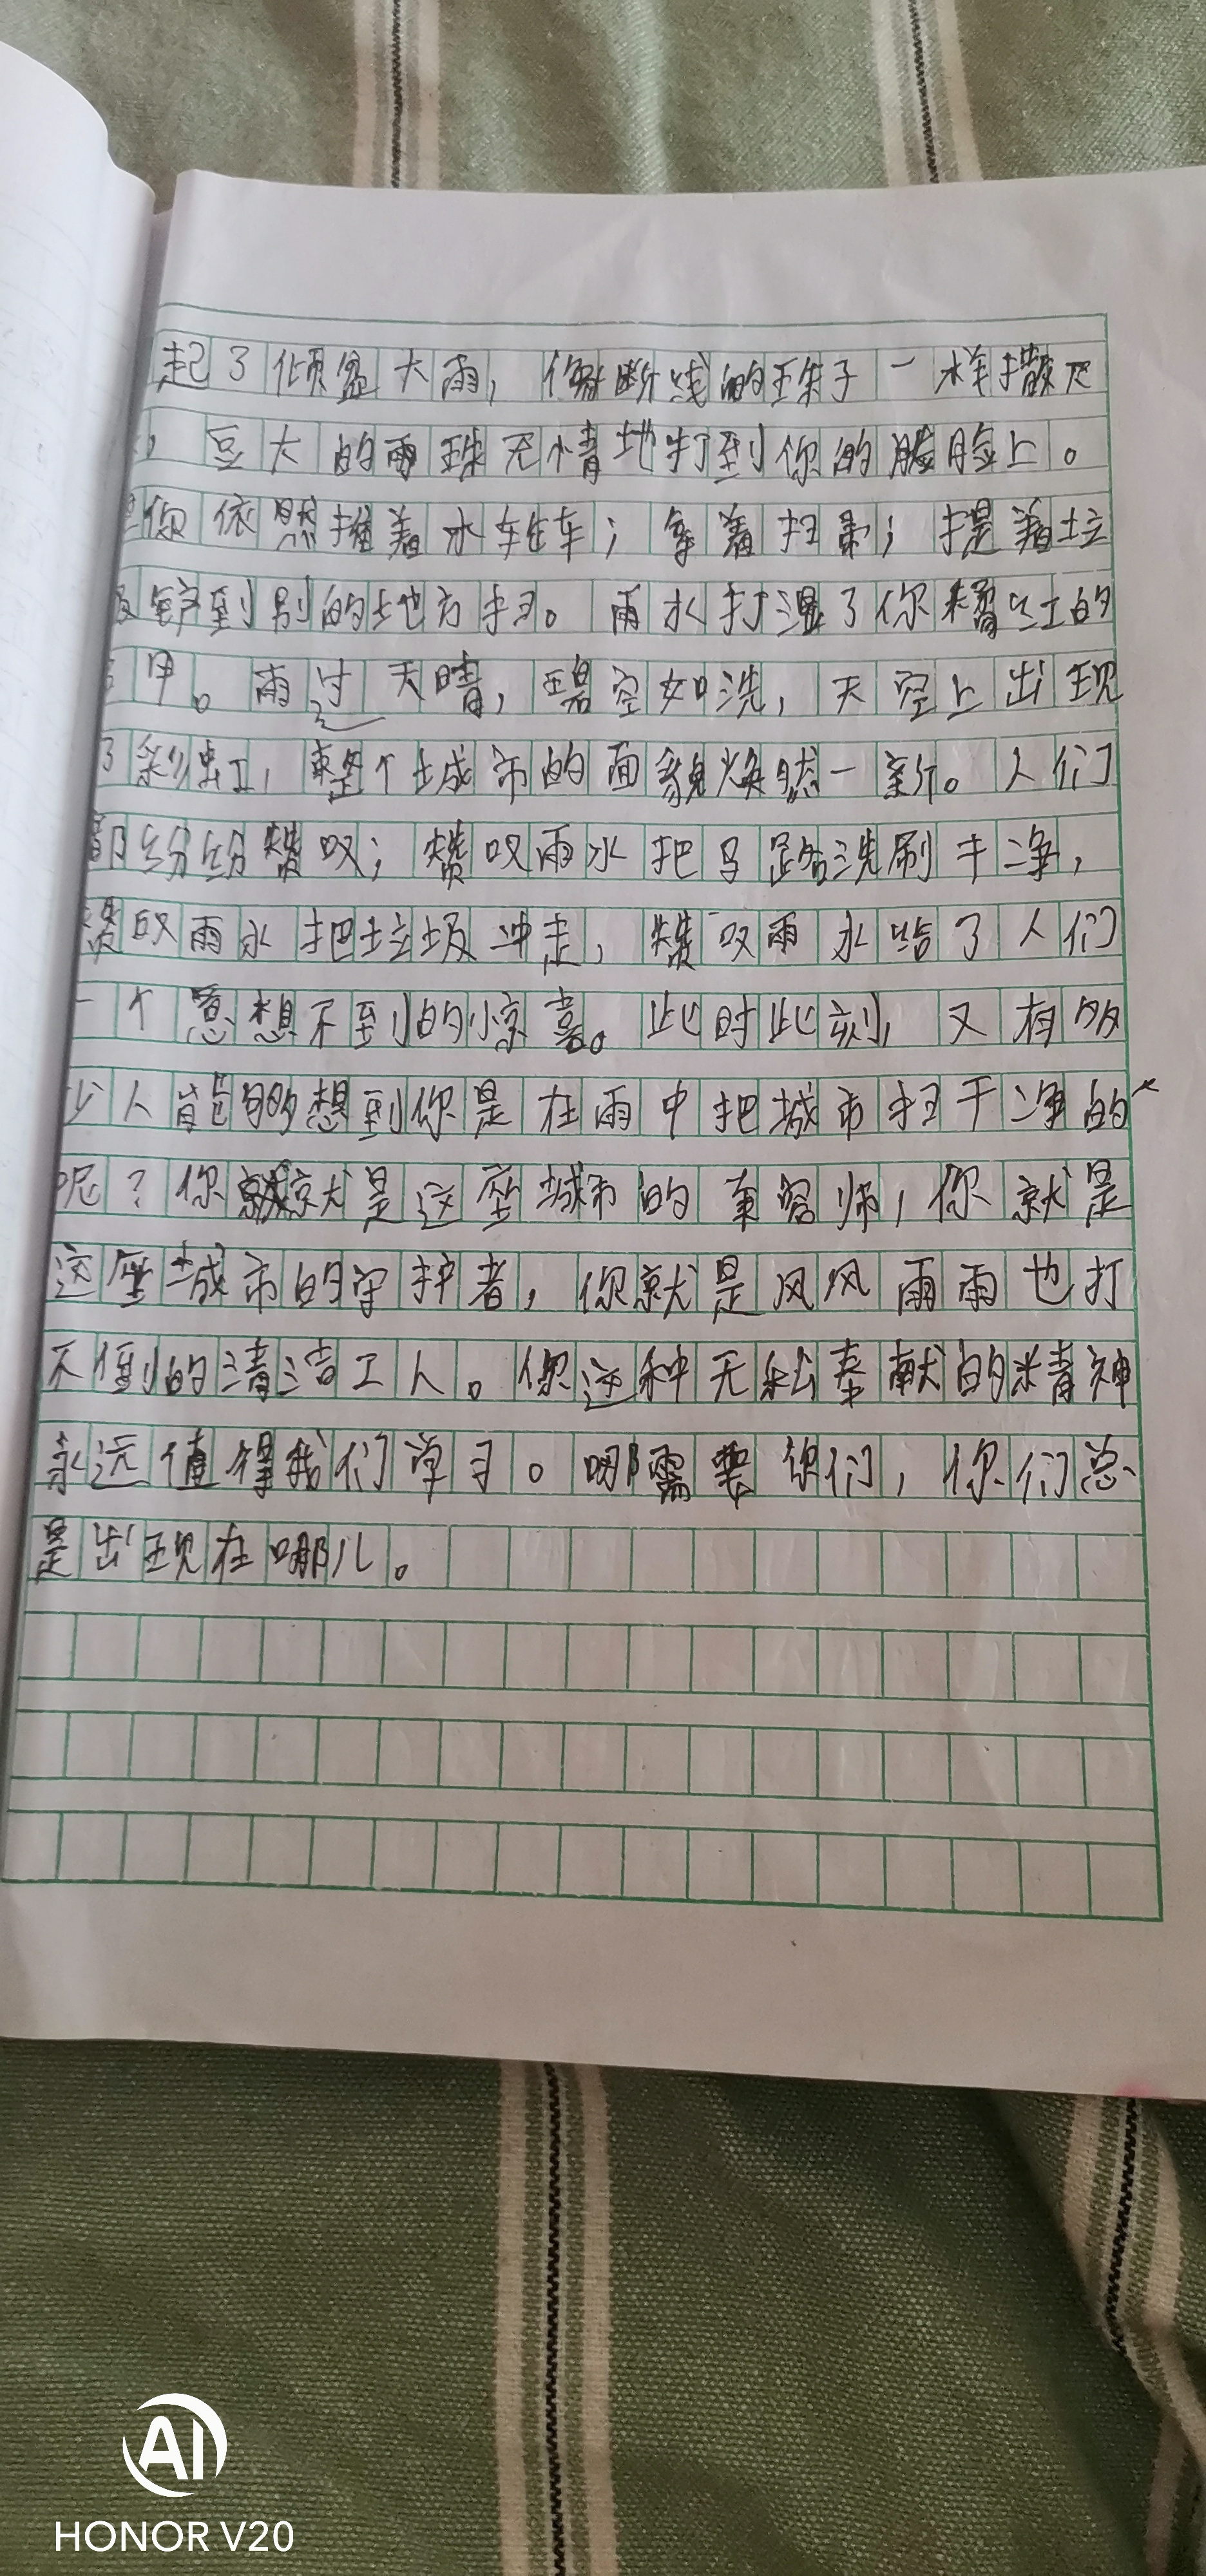 起了倾盆大雨，像断线的珠子一样撒
豆大的雨珠无情地打到你的脸上。
你依然推着水车；拿着扫帚；提着垃
铲到别的地方扫。雨水打湿了你橘红的
甲。雨过天晴，碧空如洗，天空上出现
了彩虹，整个城市的面貌焕然一新。人们
都纷纷赞叹；赞叹雨水把马路洗刷干净，
赞叹雨水把垃圾冲走，赞叹雨水给了人们
一个意想不到的惊喜。此时此刻，又有多
少人能够想到你是在雨中把城市扫干净的
呢？你就是这座城市的美容师，你就是
这座城市的守护者，你就是风风雨雨也打
不倒的清洁工人。你这种无私奉献的精神
永远值得我们学习。哪需要你们，你们总
是出现在哪儿。
AI
HONOR V20